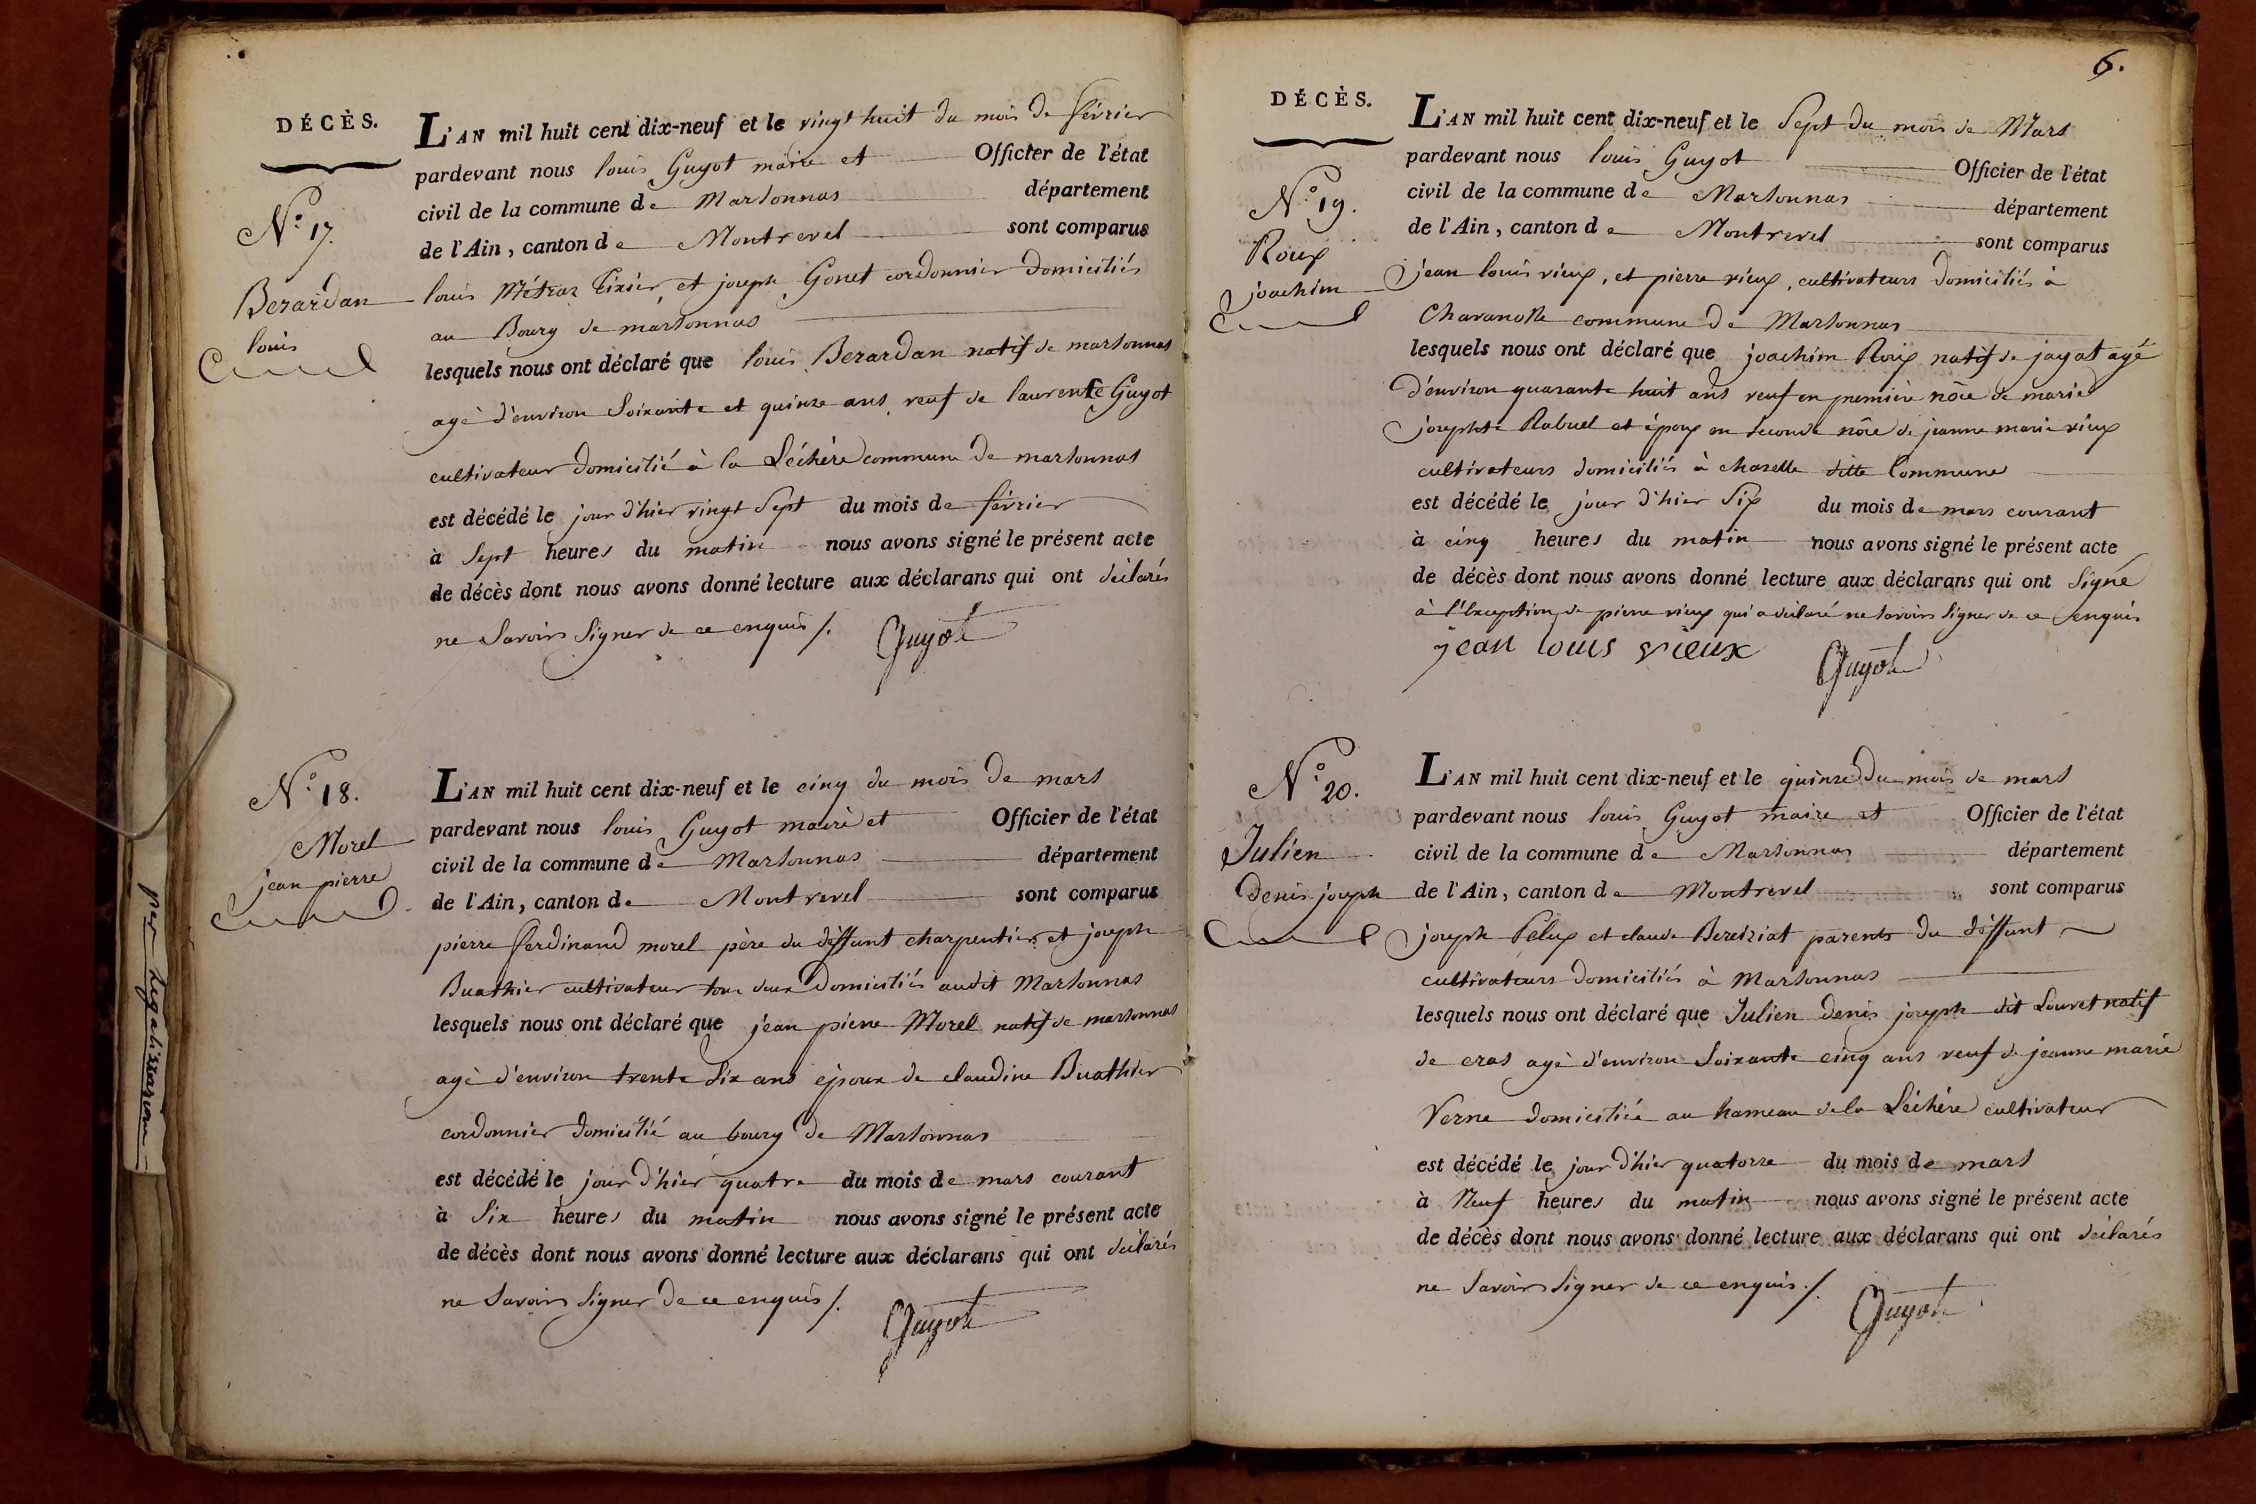 DÉCÈS.
N.° 17.
Berardan
louis
L'AN mil huit cent dix-neuf et le vingt huit du mois de février
pardevant nous louis Guyot maire et Officier de l'état
civil de la commune de Marsonnas département
de l'Ain, canton de Montrevel sont comparus
louis Métraz Tixier, et joseph Gonet cordonnier domiciliés
au Bourg de marsonnas
lesquels nous ont déclaré que louis Berardan natif de marsonnas
agé d'environ Soixante et quinze ans, veuf de laurente Guyot
cultivateur domicilié à la Léchère commune de marsonnas
est décédé le jour d'hier vingt Sept du mois de février
à Sept heures du matin nous avons signé le présent acte
de décès dont nous avons donné lecture aux déclarans qui ont déclarés
ne Savoir Signer de ce enquis /.
Guyot
N.° 18.
Morel
jean pierre
L'AN mil huit cent dix-neuf et le cinq du mois de mars
pardevant nous louis Guyot maire et Officier de l'état
civil de la commune de Marsonnas département
de l'Ain, canton de Montrevel sont comparus
pierre ferdinand morel père du déffunt charpentier et joseph
Buathier cultivateur tous deux Domiciliés audit Marsonnas
lesquels nous ont déclaré que jean pierre Morel natif de marsonnas
agé d'environ trente Six ans époux de claudine Buathier
cordonnier domicilié au bourg de Marsonnas
est décédé le jour d'hier quatre du mois de mars courant
à Six heures du matin nous avons signé le présent acte
de décès dont nous avons donné lecture aux déclarans qui ont déclarés
ne Savoir Signer de ce enquis /.
Guyot
6.
DÉCÈS.
N.° 19.
Roux
joachim
L'AN mil huit cent dix-neuf et le Sept du mois de Mars
pardevant nous louis Guyot Officier de l'état
civil de la commune de Marsonnas département
de l'Ain, canton de Montrevel sont comparus
jean louis vieux, et pierre vieux, cultivateurs domiciliés à
commune de Marsonnas
lesquels nous ont déclaré que joachim Roux natif de jayat agé
d'environ quarante huit ans veuf en première nôce de marie
josephte Rabuel et époux en seconde nôce de jeanne marie vieux
cultivateurs domiciliés à chazelle ditte Commune
est décédé le jour d'hier Six du mois de mars courant
à cinq heures du matin nous avons signé le présent acte
de décès dont nous avons donné lecture aux déclarans qui ont Signé
à l'Exception de pierre vieux qui a déclaré ne savoir signer de ce enquis
jean louis vieux
Guyot
N.° 20.
Julien
denis joseph
L'AN mil huit cent dix-neuf et le quinze du mois de mars
pardevant nous louis Guyot maire et Officier de l'état
civil de la commune de Marsonnas département
de l'Ain, canton de Montrevel sont comparus
joseph Pélux et claude Bereiziat parents du déffunt
cultivateurs domiciliés à Marsonnas
lesquels nous ont déclaré que Julien denis joseph dit Louvet natif
de cras agé d'environ Soixante cinq ans veuf de jeanne marie
Verne domiciliée au hameau de la Léchère cultivateur
est décédé le jour d'hier quatorze du mois de mars
à Neuf heures du matin nous avons signé le présent acte
de décès dont nous avons donné lecture aux déclarans qui ont déclarés
ne Savoir Signer de ce enquis /.
Guyot